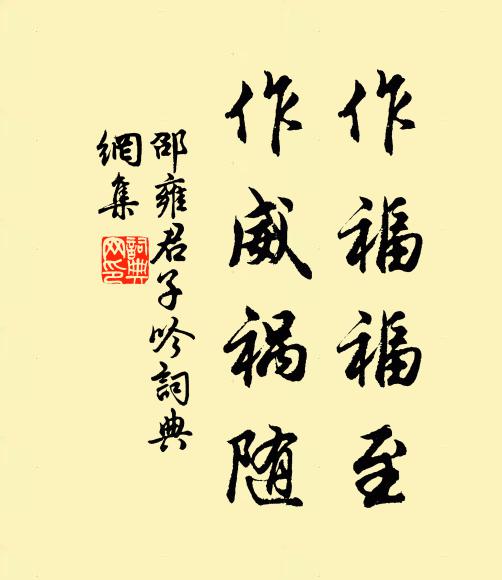 作福福至
作威祸随
邵雍君子吟词典
網集
詞典网印